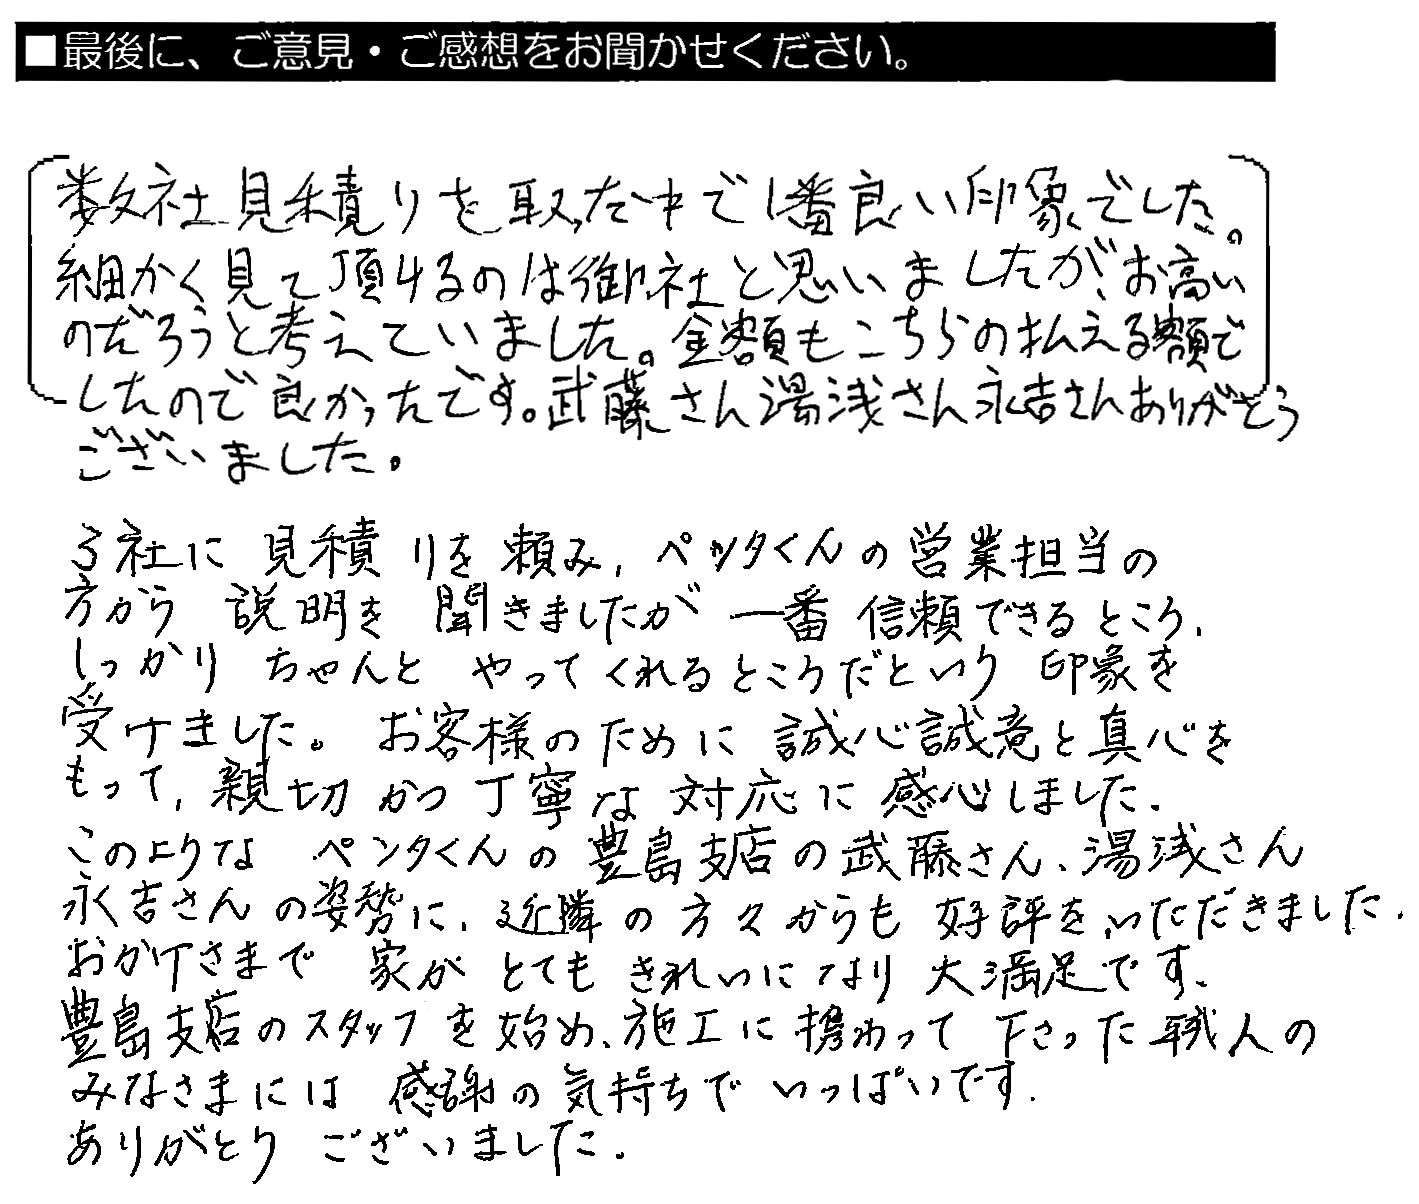 ■最後に、ご意見・ご感想をお聞かせください。
数社見積りを取った中で1番良い印象でした。
細かく見て頂けるのは御社と思いましたが、お高い
のだろうと考えていました。金額もこちらの払える額で
したので良かったです。武藤さん湯浅さん永吉さんありがとう
ございました。
3社に見積りを頼み、ペンタくんの営業担当の
方から説明を聞きましたが一番信頼できるところ、
しっかりちゃんとやってくれるところだという印象を
受けました。お客様のために誠心誠意と真心を
もって、親切かつ丁寧な対応に感心しました。
このようなペンタくんの豊島支店の武藤さん、湯浅さん
永吉さんの姿勢に、近隣の方々からも好評をいただきました。
おかげさまで家がとてもきれいになり大満足です。
豊島支店のスタッフを始め、施工に携わって下さった職人の
みなさまには感謝の気持ちでいっぱいです。
ありがとうございました。